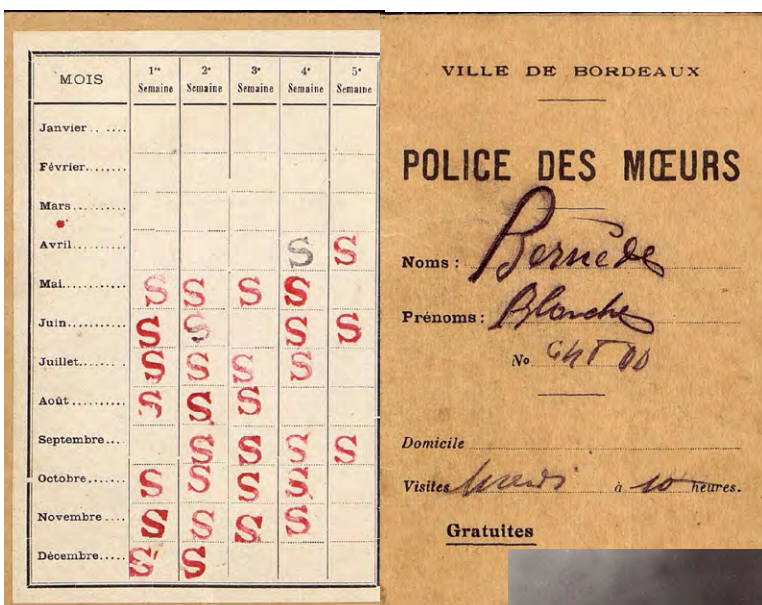 MOIS
1re Semaine 2e Semaine 3e Semaine 4e Semaine 5e Semaine
Janvier
Février
Mars
Avril S S
Mai S S S S
Juin S S S S
Juillet S S S S
Août S S S
Septembre S S S S
Octobre S S S S
Novembre S S S S
Décembre S S
VILLE DE BORDEAUX
POLICE DES MŒURS
Noms : Bernède
Prénoms : Blanche
No
Domicile
Visites à 10 heures.
Gratuites